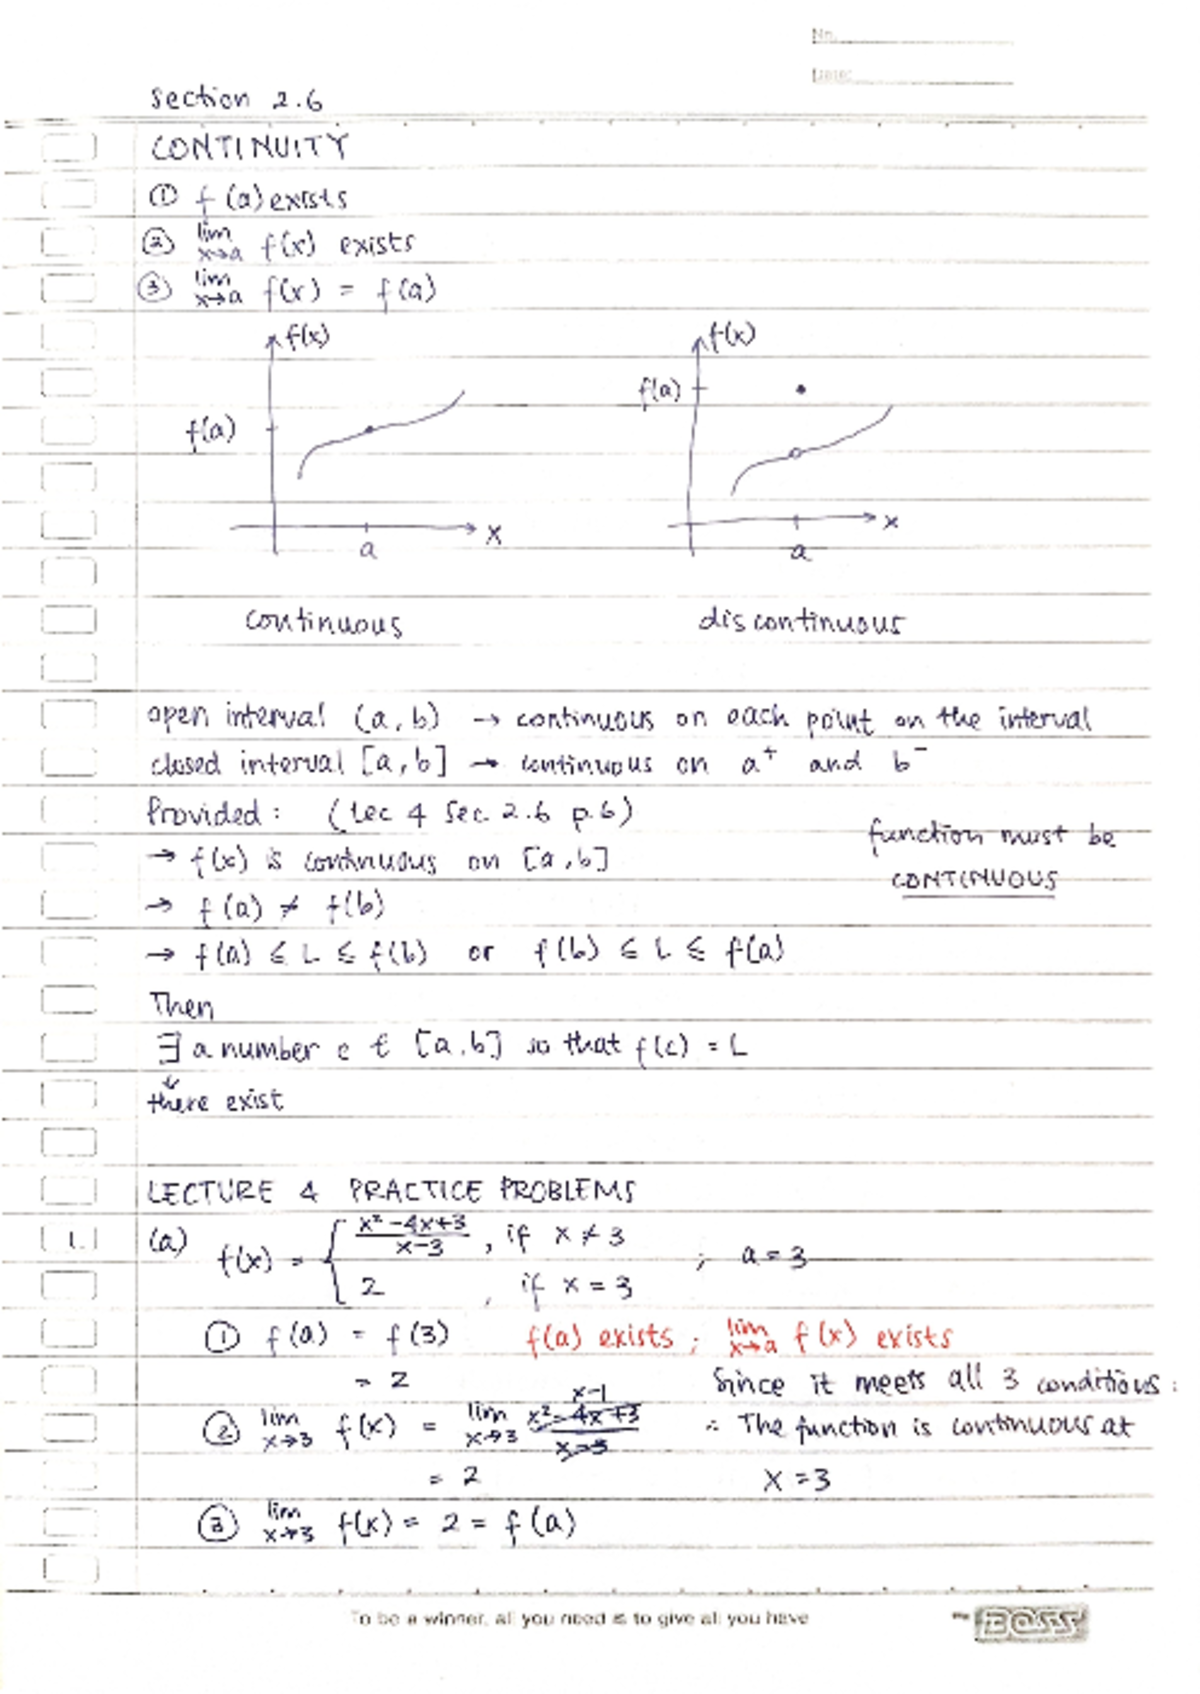 No.
Date:
Section 2.6
CONTINUITY
① f(a) exists
② lim x→a f(x) exists
③ lim x→a f(x) = f(a)
f(x) f(x)
f(a)
f(a)
x x
a a
continuous discontinuous
open interval (a, b) → continuous on each point on the interval
closed interval [a, b] → continuous on a⁺ and b⁻
Provided: (Lec 4 Sec 2.6 p.6)
→ f(x) is continuous on [a, b]
function must be
CONTINUOUS
→ f(a) ≠ f(b)
→ f(a) ≤ L ≤ f(b) or f(b) ≤ L ≤ f(a)
Then
∃ a number c ∈ [a, b] so that f(c) = L
↓
there exist
LECTURE 4 PRACTICE PROBLEMS
1. (a) f(x) = { x² - 4x + 3 / x - 3 , if x ≠ 3 ; a = 3
2 , if x = 3
① f(a) = f(3) f(a) exists ; lim x→a f(x) exists
= 2 Since it meets all 3 conditions :
② lim x→3 f(x) = lim x→3 x² - 4x + 3 / x - 3 x-1 ∴ The function is continuous at
= 2 x = 3
③ lim x→3 f(x) = 2 = f(a)
To be a winner, all you need is to give all you have
BOSS